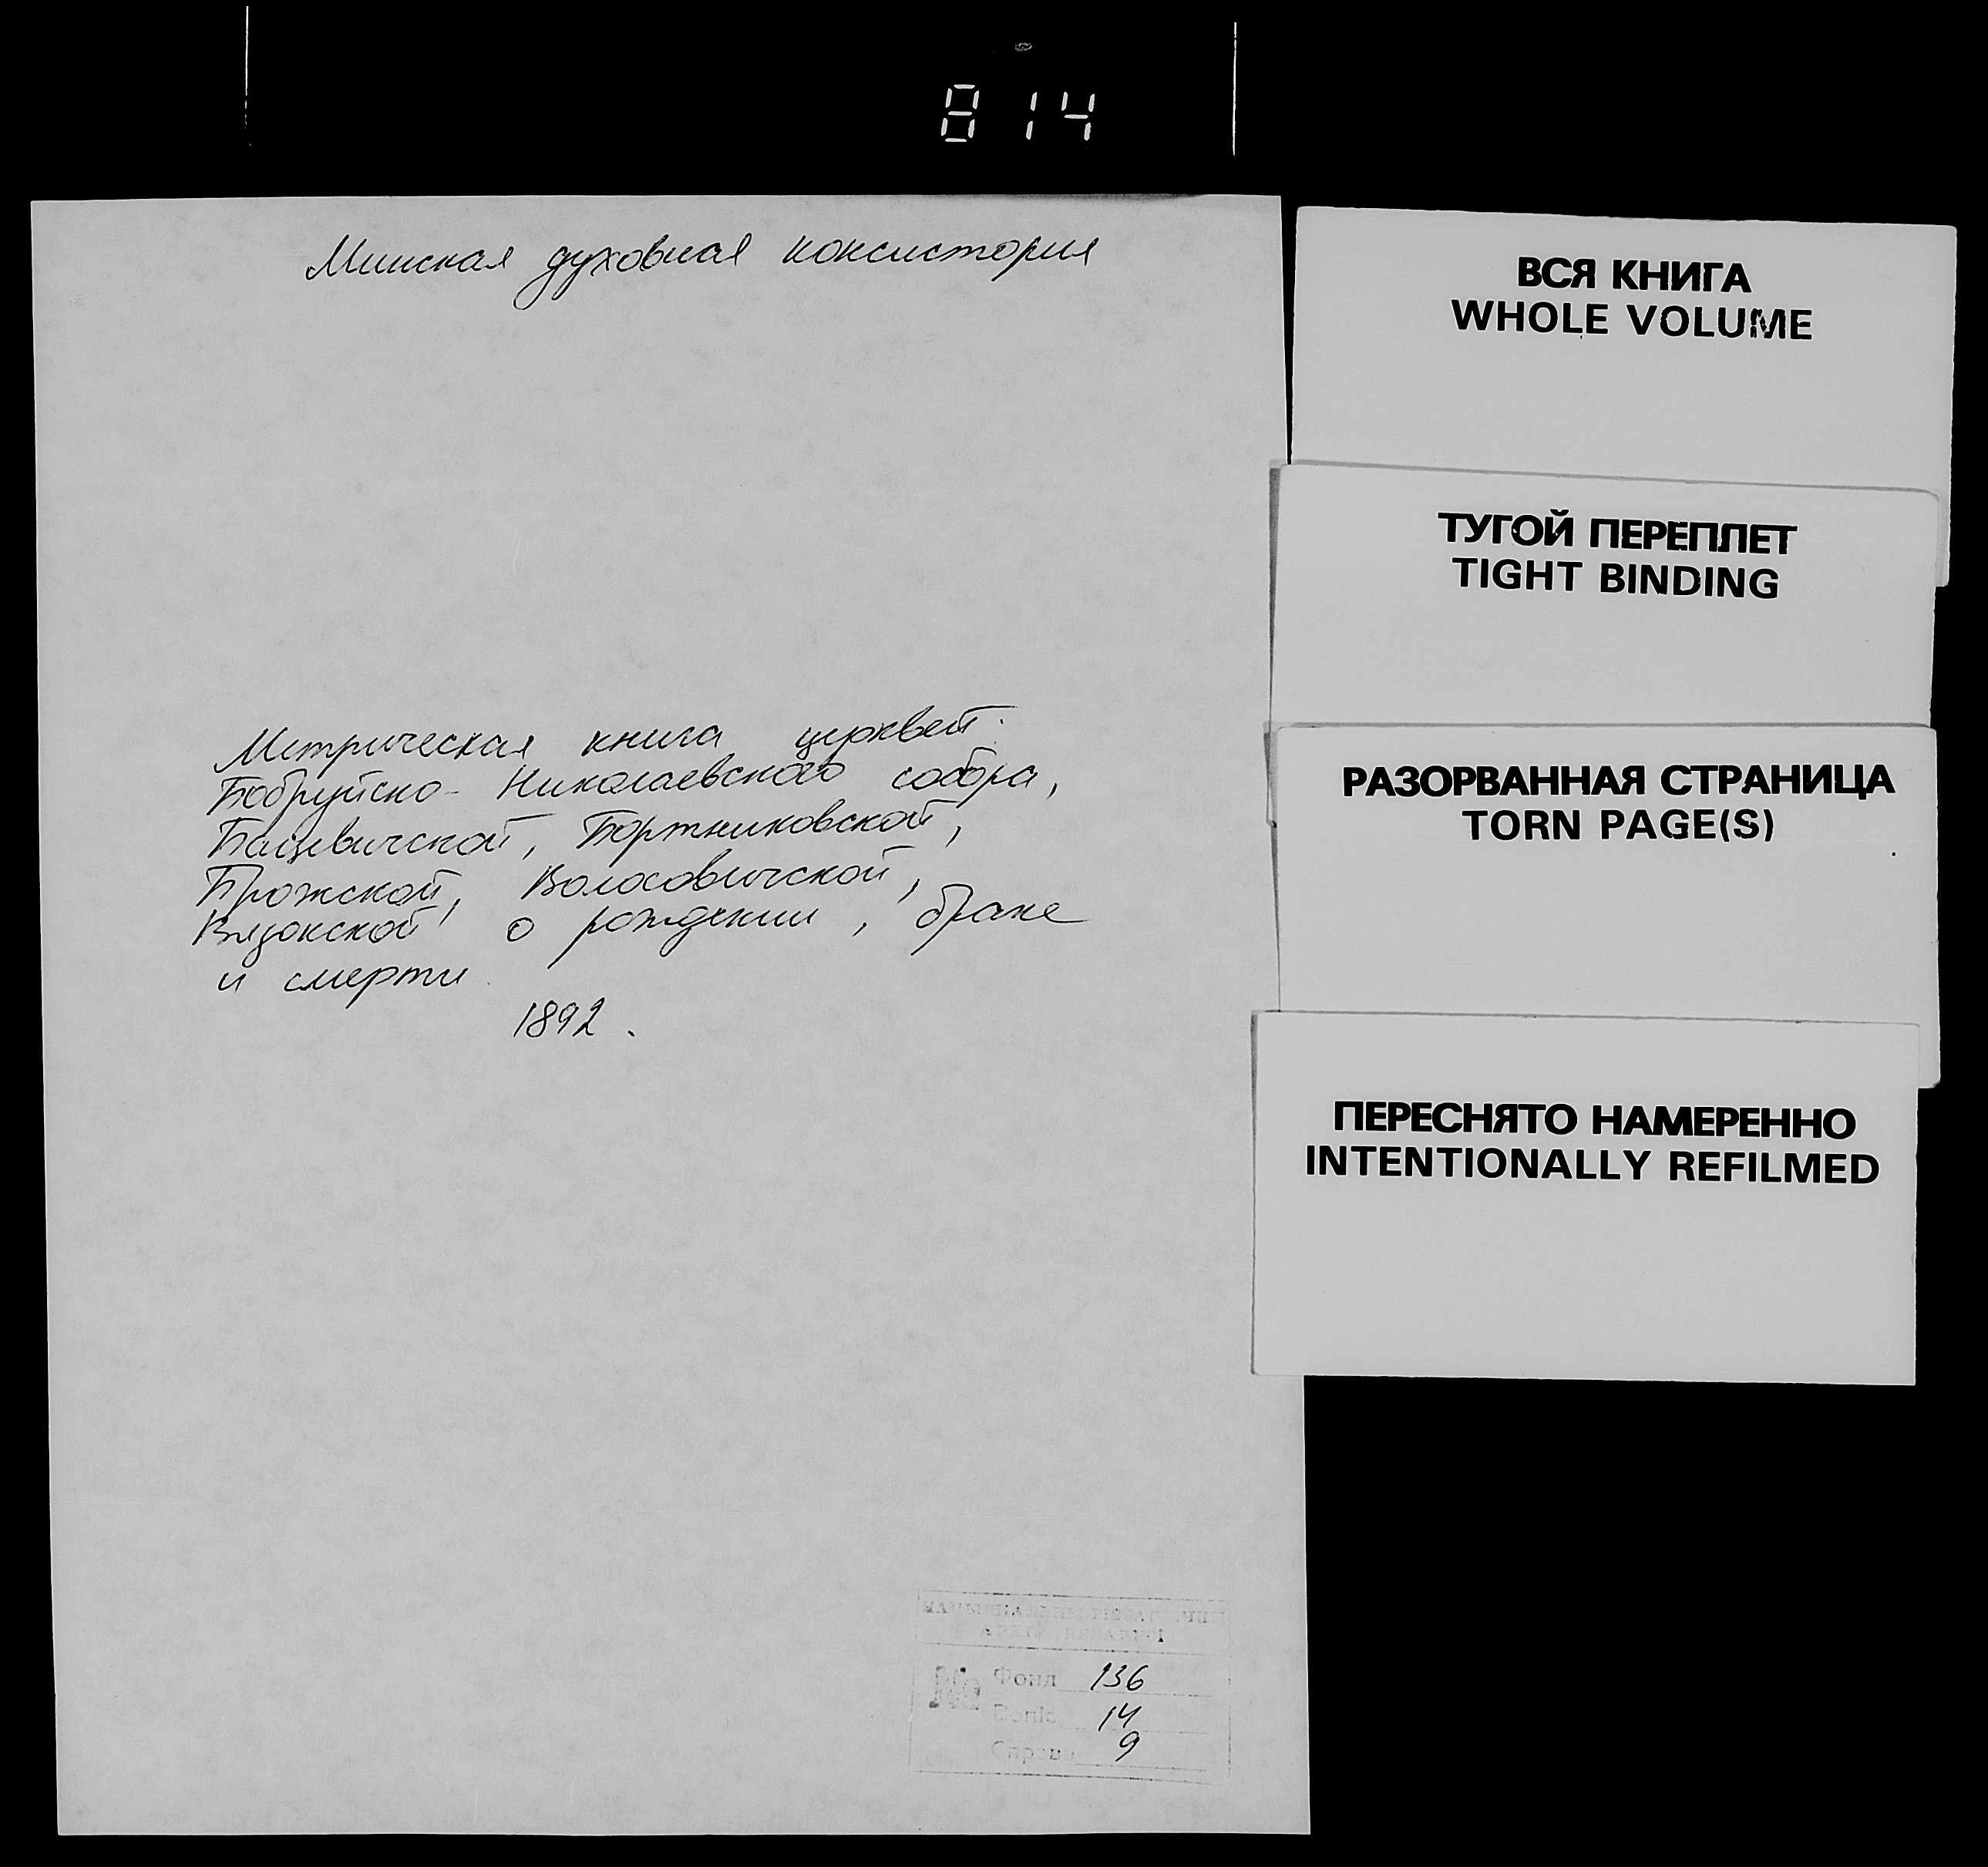 814
Минская духовная консистория
Метрическая книга церквей:
Бобруйско-Николаевского собора,
Бацевичской, Бортниковской,
Брожской, Волосовичской,
Вязокской о рождении, браке
и смерти
1892.
Фонд 136
Вопіс 14
Справа 9
ВСЯ КНИГА
WHOLE VOLUME
ТУГОЙ ПЕРЕПЛЕТ
TIGHT BINDING
РАЗОРВАННАЯ СТРАНИЦА
TORN PAGE(S)
ПЕРЕСНЯТО НАМЕРЕННО
INTENTIONALLY REFILMED